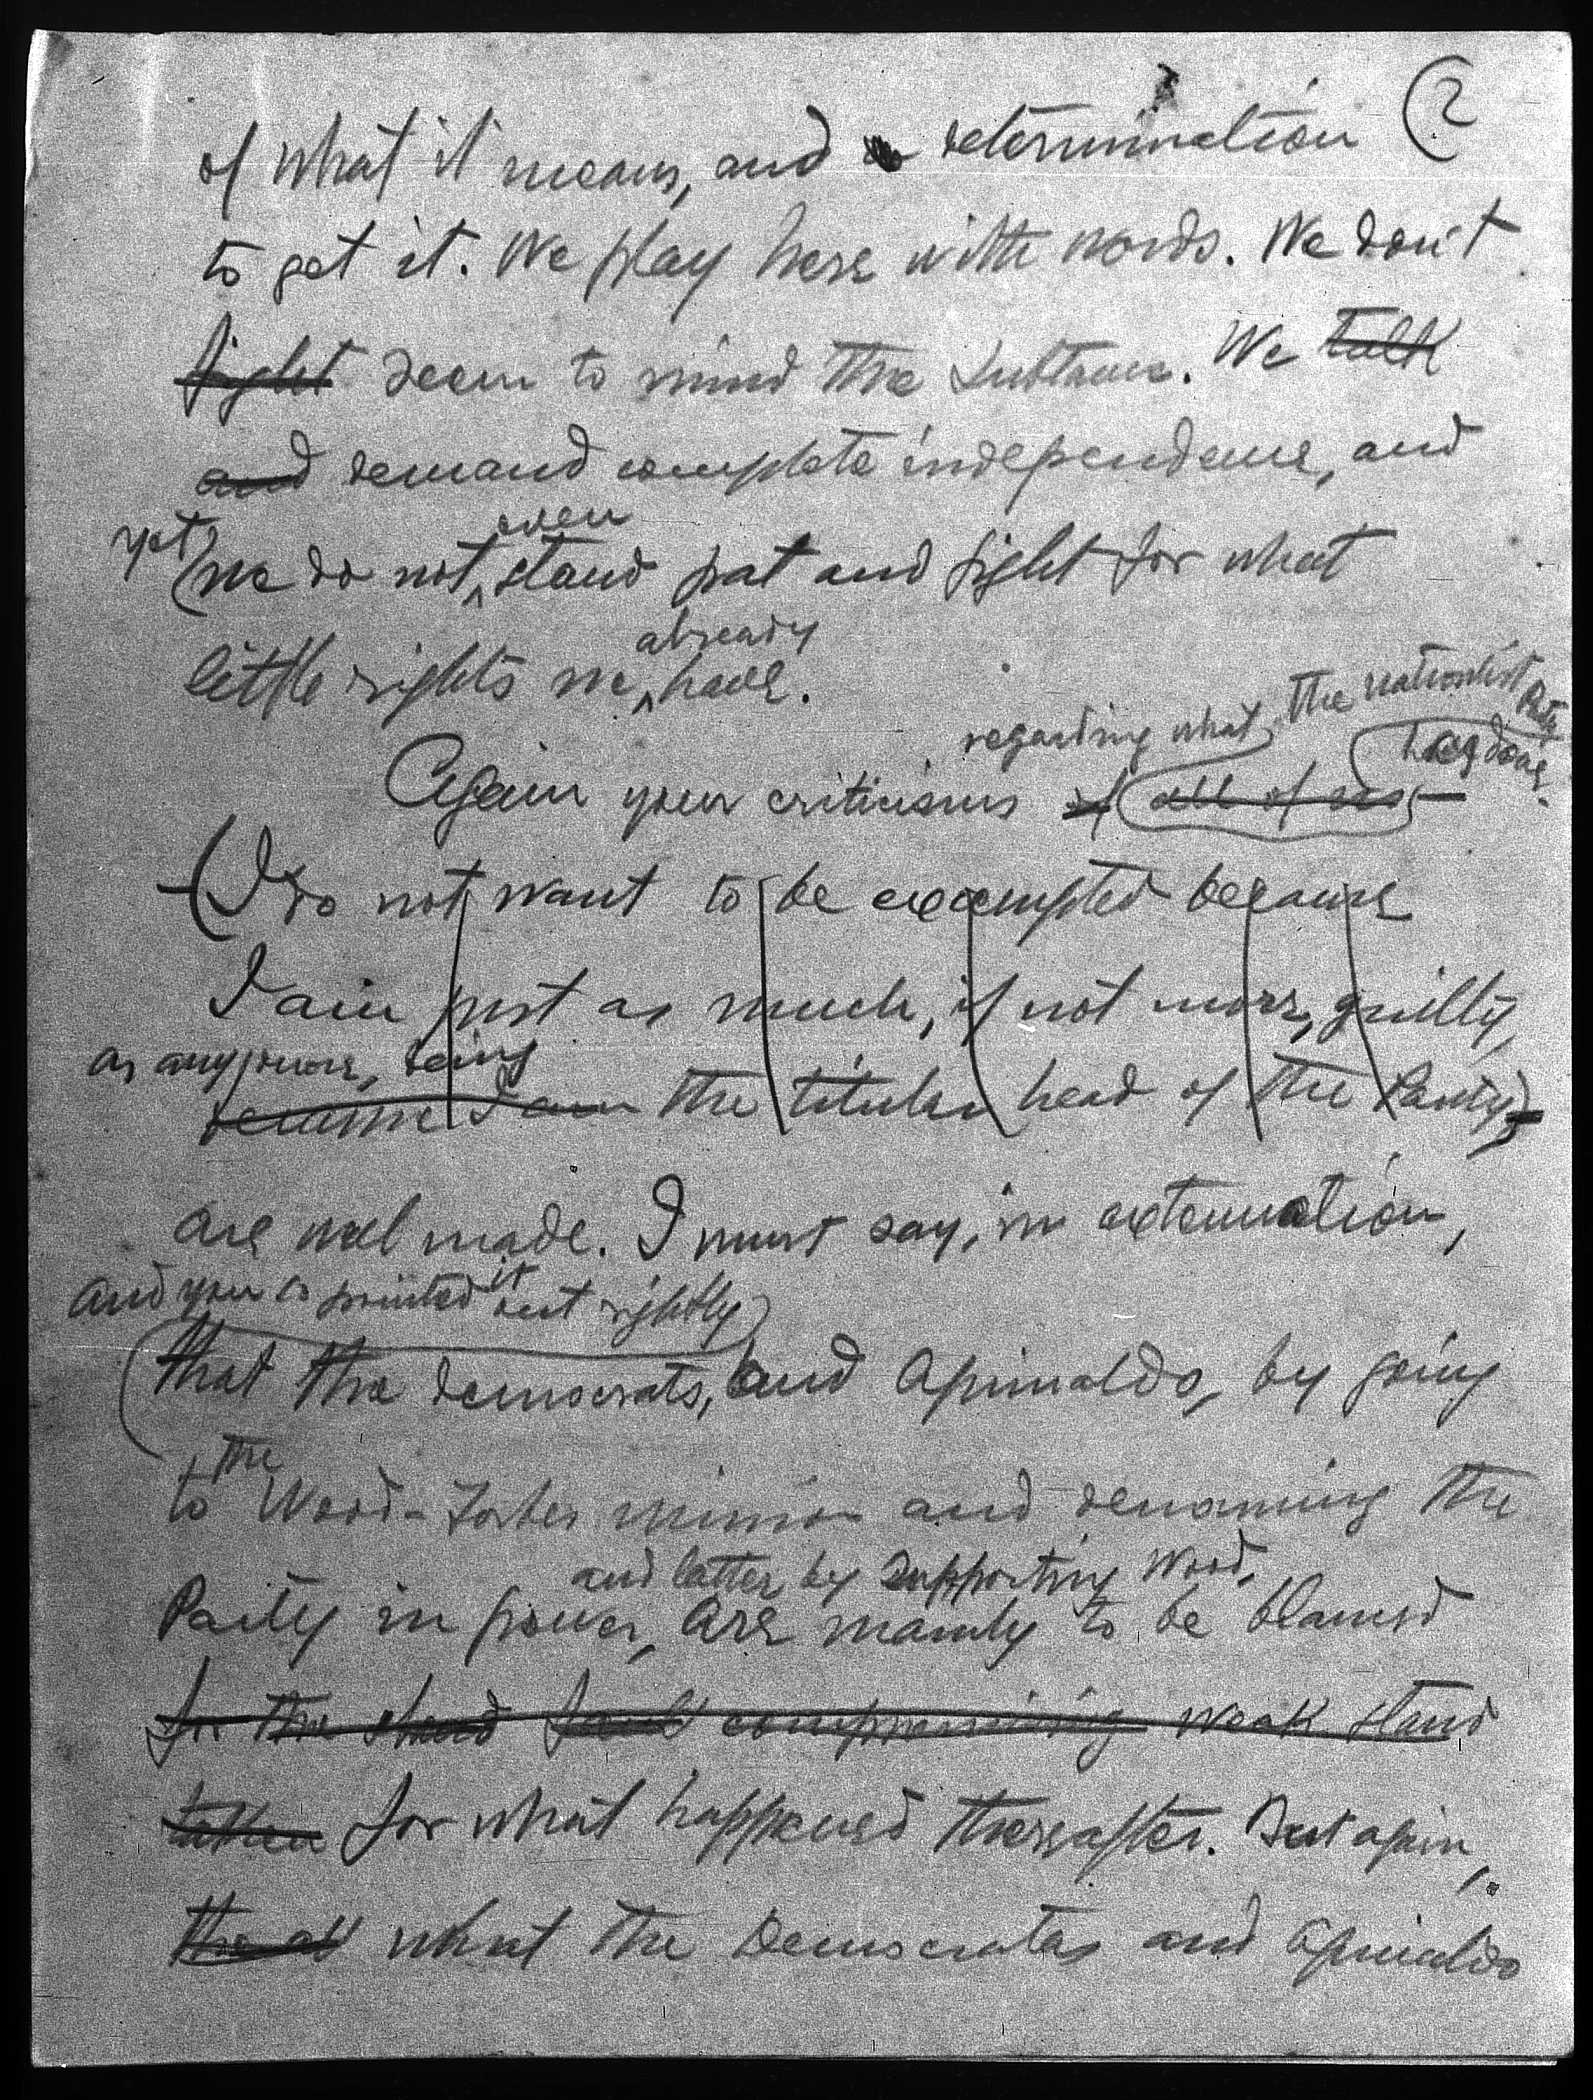 2
of what it means, and determination
to get it. We play here with words. We don't
fight seem to mind the substance. We talk
and demand complete independence, and
even
yet we do not stand pat and fight for what
already
little rights we have.
regarding what the nationalist Party
has done.
Again your criticisms of all of us
I do not want to be exempted because
I am just as much, if not more, guilty,
as anyone, being
because I am the titular head of the Party,
are well made. I must say, in extenuation,
and you pointed it out rightly
that the democrats, and Aguinaldo, by going
the
to Wood-Forbes mission and denouncing the
and latter by supporting Wood,
Party in power, are mainly to be blamed
for the stand compromising weak stand
taken for what happened thereafter. But again,
the what the Democratas and Aguinaldo